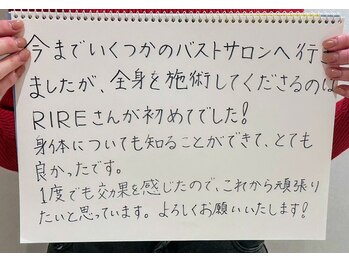 今までいくつかのバストサロンへ行き
ましたが、全身を施術してくださるのは
RIREさんが初めてでした!
身体についても知ることができて、とても
良かったです。
1度でも効果を感じたので、これから頑張り
たいと思っています。よろしくお願いいたします!